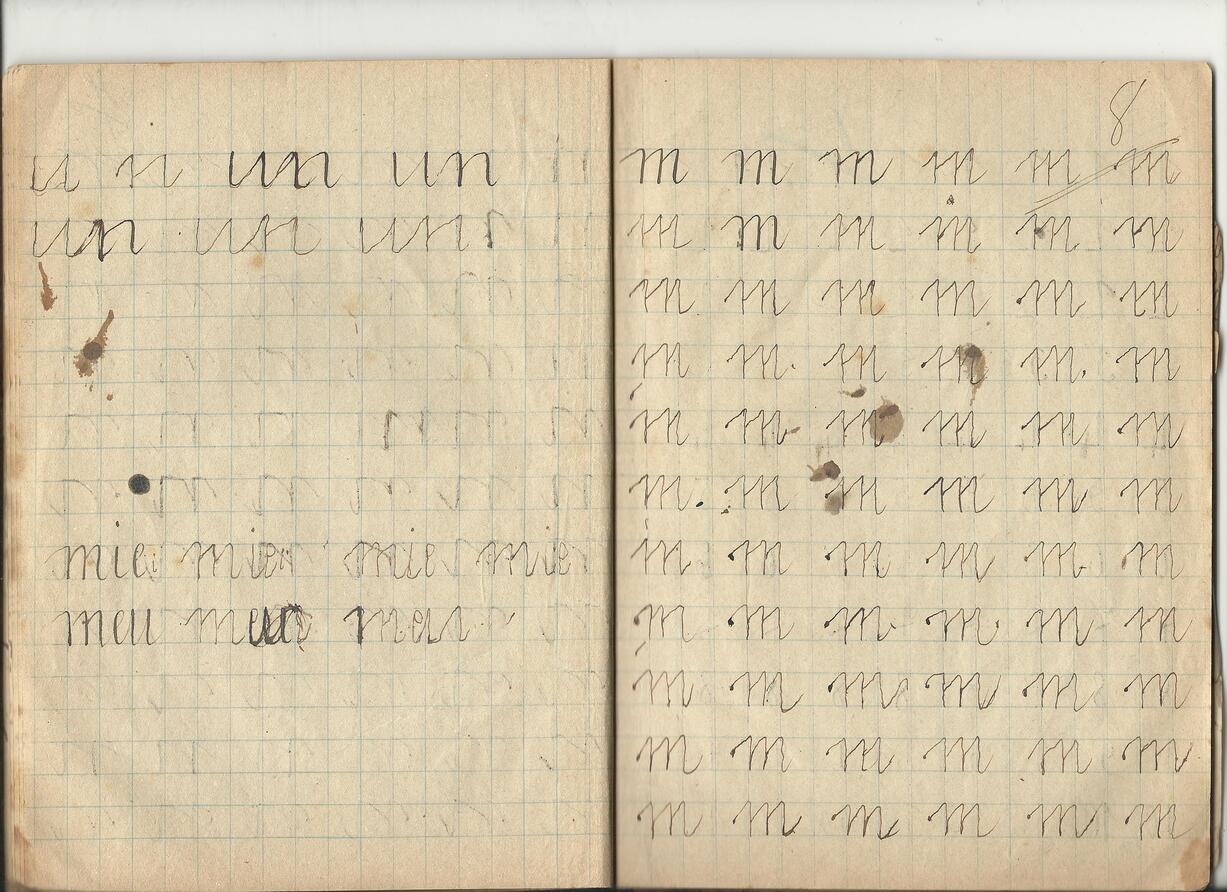 u n un un
un un un
mie mie mie mie
meu meu meu
8
m m m m m m
m m m m m m
m m m m m m
m m m m m m
m m m m m m
m m m m m m
m m m m m m
m m m m m m
m m m m m m
m m m m m m
m m m m m m